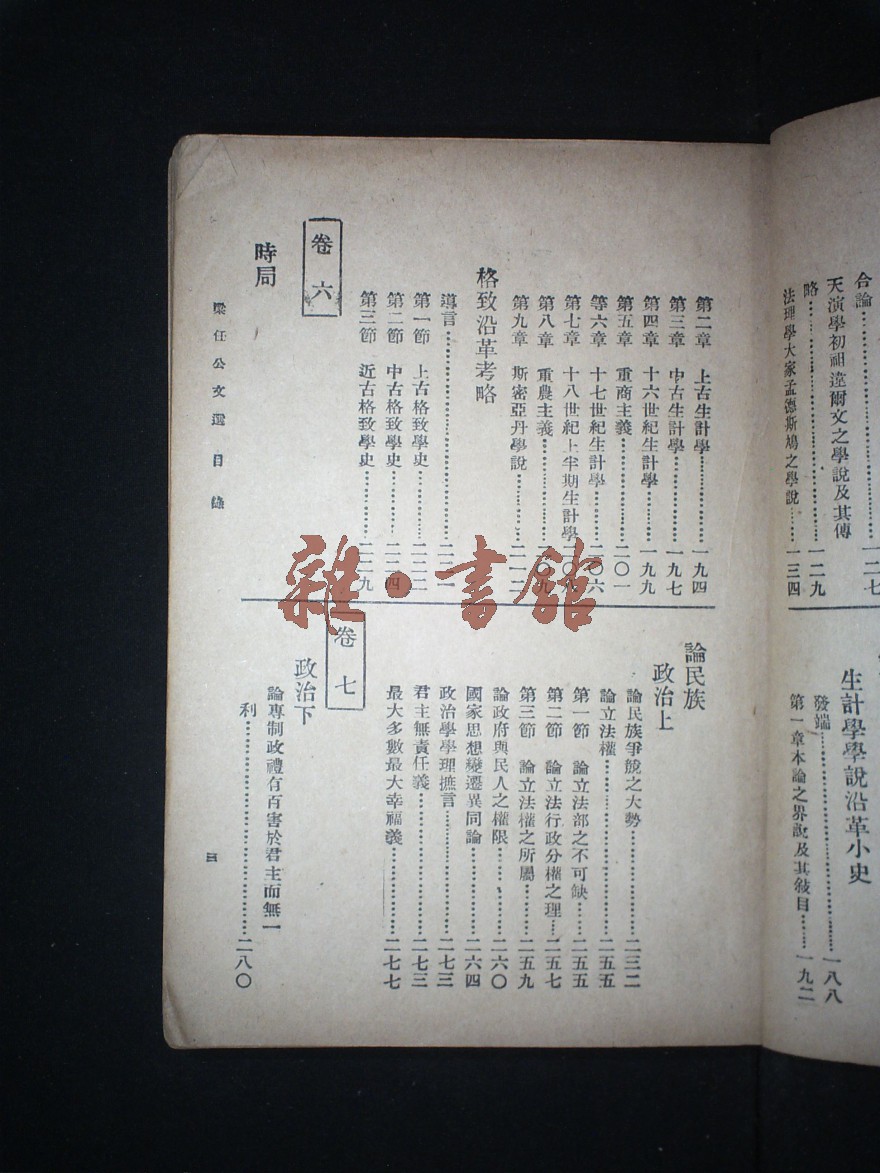 合論…………一二七
天演學初祖達爾文之學說及其傳
略…………一二九
法理學大家孟德斯鳩之學說……一三四
生計學學說沿革小史
發端…………一八八
第一章本論之界說及其敍目……一九二
第二章　上古生計學…………一九四
第三章　中古生計學…………一九七
第四章　十六世紀生計學…………一九九
第五章　重商主義…………二〇一
等六章　十七世紀生計學……二〇六
第七章　十八世紀上半期生計學二〇八
第八章　重農主義…………二〇九
第九章　斯密亞丹學說…………二一二
格致沿革考略
導言…………二二一
第一節　上古格致學史…………二二二
第二節　中古格致學史…………二二四
第三節　近古格致學史…………二二九
卷六
時局
論民族
政治上
論民族爭競之大勢…………二三二
論立法權…………二五五
第一節　論立法部之不可缺……二五五
第二節　論立法行政分權之理…二五七
第三節　論立法權之所屬………二五九
論政府與民人之權限…………二六〇
國家思想變遷異同論…………二六四
政治學學理摭言…………二七三
君主無責任義…………二七三
最大多數最大幸福義…………二七七
卷七
政治下
論專制政禮有百害於君主而無一
利…………二八〇
梁任公文選目錄
三
雜·書館